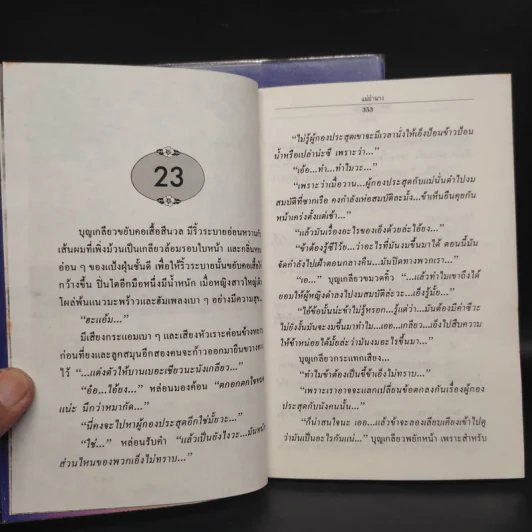 23
บุญเกลียวขยับคอเสื้อสีนวล มีริ้วระบายอ่อนหวานกับ
เส้นผมที่เพิ่งม้วนเป็นเกลียวล้อมรอบใบหน้า และกลิ่นหอม
อ่อน ๆ ของแป้งฝุ่นชั้นดี เพื่อให้ริ้วระบายนั้นขยับคอเสื้อ
กว้างขึ้น ปิ่นโตอีกมือหนึ่งมีน้ำหนัก เมื่อหญิงสาวใหญ่
ไผล่พ้นแนวมะพร้าวและฮัมเพลงเบา ๆ อย่างมีความสุข...
“ฮะแอ้ม...”
มีเสียงกระแอมเบา ๆ และเสียงหัวเราะค่อนข้าง
ก่อนที่ยงและลูกสมุนอีกสองคนจะก้าวออกมายืนขวาง
ไว้ “...แต่งตัวให้บานเบอะเชียวนะนังเกลียว...”
“อ๋อ...ไอ้ยง...” หล่อนมองค้อน “ตกอกตกใจหมด
แน่ะ นึกว่าหมากัด...”
“นี่คงจะไปหาผู้กองประสุตอีกใช่มั้ยวะ...”
“ใช่...” หล่อนรับคำ “แล้วเป็นยังไงวะ...มันหนัก
ส่วนไหนของพวกเอ็งไม่ทราบ...”
แม่ย่านาง
353
“ไม่รู้ผู้กองประสุตเขาจะมีเวลานั่งให้เอ็งป้อนข้าวป้อน
น้ำหรือเปล่าน่ะซี เพราะว่า...”
“เอ้อ...ทำ...ทำไมวะ...”
“เพราะว่าเมื่อวาน...ผู้กองประสุตกับแม่นั่นดำไปงม
สมบัติที่ซากเรือ คงกำลังเห่อสมบัติละมั้ง...ข้าเห็นยืนคุยกัน
หน้าเคร่งตั้งแต่เช้า...”
“แล้วมันเรื่องอะไรของเอ็งด้วยล่ะไอ้ยง...”
“ข้าต้องรู้ซีไว้ย...ว่าอะไรที่มันงมขึ้นมาได้ ตอนนี้มัน
จัดกำลังไปเฝ้าตอนกลางคืน...มันปิดทางพวกเรา...”
“เอ...” บุญเกลียวขมวดคิ้ว “...แล้วทำไมเขาถึงได้
ยอมให้ผู้หญิงดำลงไปงมสมบัติล่ะวะ...เอ็งรู้มั้ย...”
“ไอ้ข้อนั้นน่ะข้าไม่รู้หรอก...รู้แต่ว่า...มันต้องมีค่าซีวะ
ไม่ยังงั้นมันจะงมขึ้นมาทำไม...เออ...เกลียว...เอ็งไปสืบความ
ให้ข้าหน่อยได้มั้ยวะว่ามันงมอะไรขึ้นมา...”
บุญเกลียวกระแทกเสียง...
“ทำไมข้าต้องเป็นขี้ข้าเอ็งไม่ทราบ...”
“เพราะเราอาจจะแลกเปลี่ยนข้อตกลงกันเรื่องผู้กอง
ประสุตกับนังคนนั้น...”
“ก็น่าสนใจนะ เออ...แล้วข้าจะลองเลียบเคียงเข้าไปดู
ว่ามันเป็นอะไรกันแน่...” บุญเกลียวพยักหน้า เพราะสำหรับ